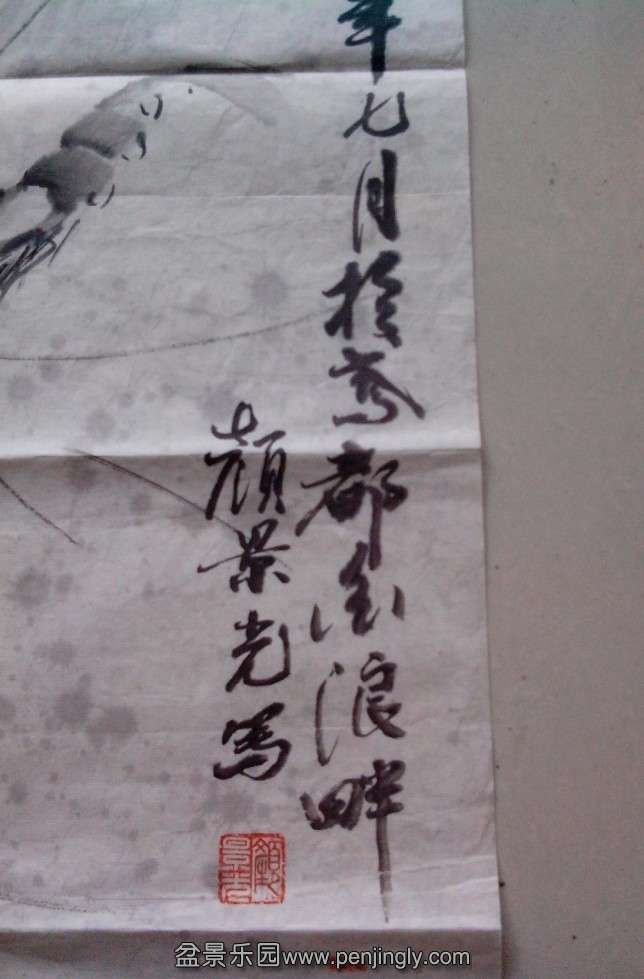 年七月於鳶都浪畔
顏景光寫
盆景乐园www.penjingly.com